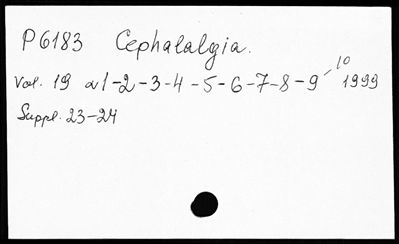 P6183 Cephalalgia.
Vol. 19 n1-2-3-4-5-6-7-8-9-10 1999
Suppl. 23-24